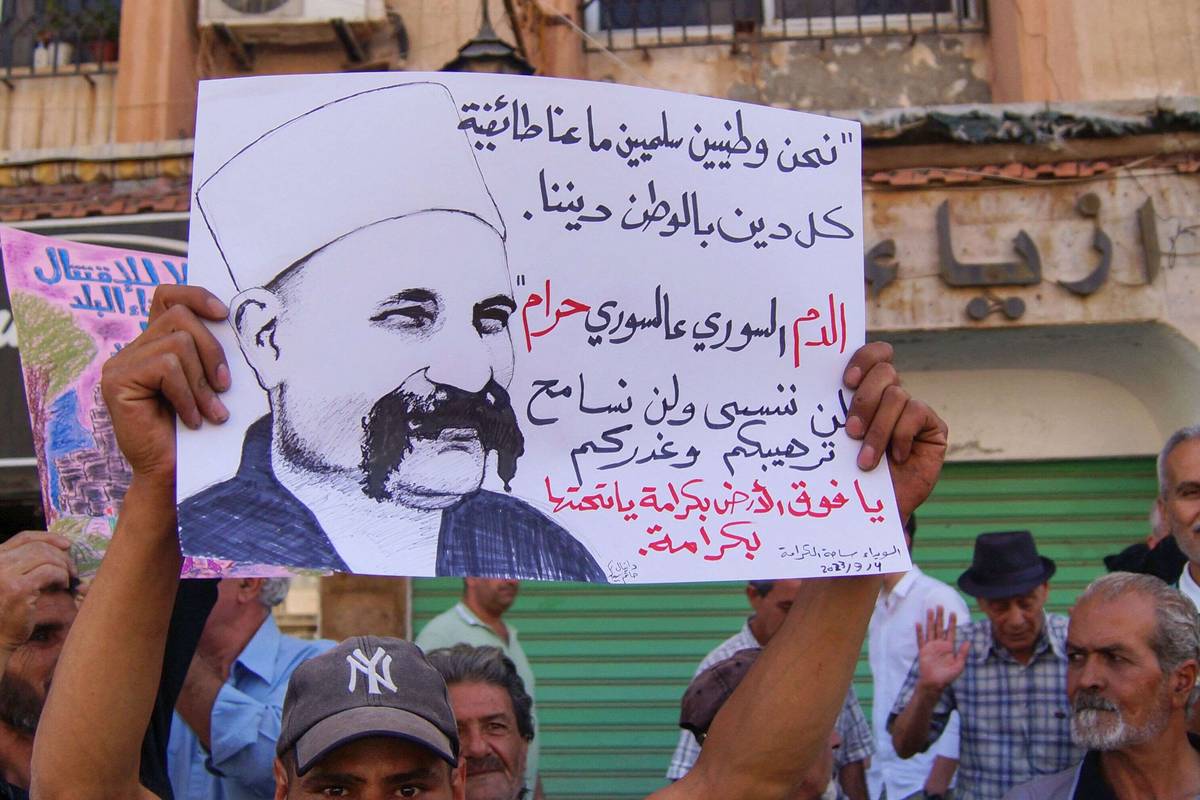 "نحن وطنيين سلميين ما عنا طائفية
كل دين بالوطن ديننا.
الدم السوري عالسوري حرام"
لن ننسى ولن نسامح
ترهيبكم وغدركم
يا فوق الأرض بكرامة يا تحتها
بكرامة.
السويداء ساحة الكرامة
2023/9/4
دانيال
لا للاقتتال
البلد
أزياء
NY